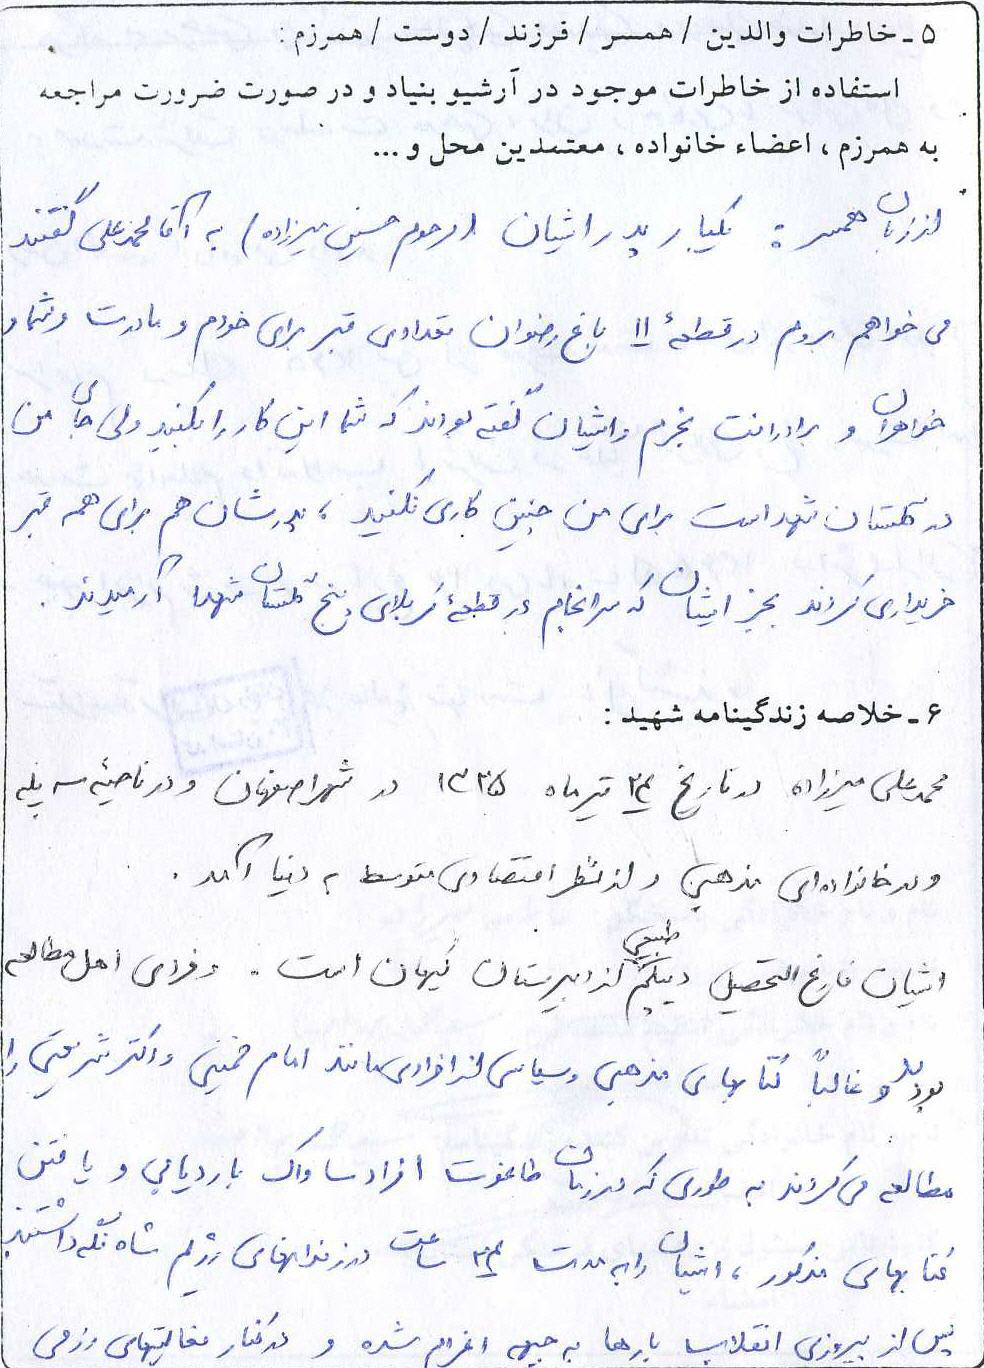 ۵ ـ خاطرات والدین / همسر / فرزند / دوست / همرزم :
استفاده از خاطرات موجود در آرشیو بنیاد و در صورت ضرورت مراجعه
به همرزم ، اعضاء خانواده ، معتمدین محل و ...
از زبان همسر : یکبار پدر ایشان (مرحوم حسین میرزاده) به آقا محمدعلی گفتند
می خواهم بروم در قطعهٔ ۱۱ باغ رضوان تعدادی قبر برای خودم و مادرت و شما و
خواهران و برادرانت بخرم و ایشان گفته بودند که شما این کار را بکنید ولی جای من
در گلستان شهداست برای من چنین کاری نکنید ، پدرشان هم برای همه قبر
خریداری کردند بجز ایشان که سرانجام در قطعهٔ کربلای پنج گلستان شهدا آرمیدند .
۶ ـ خلاصه زندگینامه شهید :
محمدعلی میرزاده در تاریخ ۲۴ تیرماه ۱۳۳۵ در شهر اصفهان و در ناحیهٔ سه پله
و در خانواده‌ای مذهبی و از نظر اقتصادی متوسط به دنیا آمد .
ایشان فارغ التحصیل دیپلم طبیعی از دبیرستان کیهان است . و فردی اهل مطالعه
بودند و غالباً کتابهای مذهبی و سیاسی از افرادی مانند امام خمینی و دکتر شریعتی را
مطالعه می کردند به طوری که در زمان طاغوت افراد ساواک با ردیابی و یافتن
کتابهای مذکور ، ایشان را به مدت ۲۴ ساعت در زندانهای رژیم شاه نگه داشتند
پس از پیروزی انقلاب بارها به جبهه اعزام شده و در کنار فعالیتهای رزمی